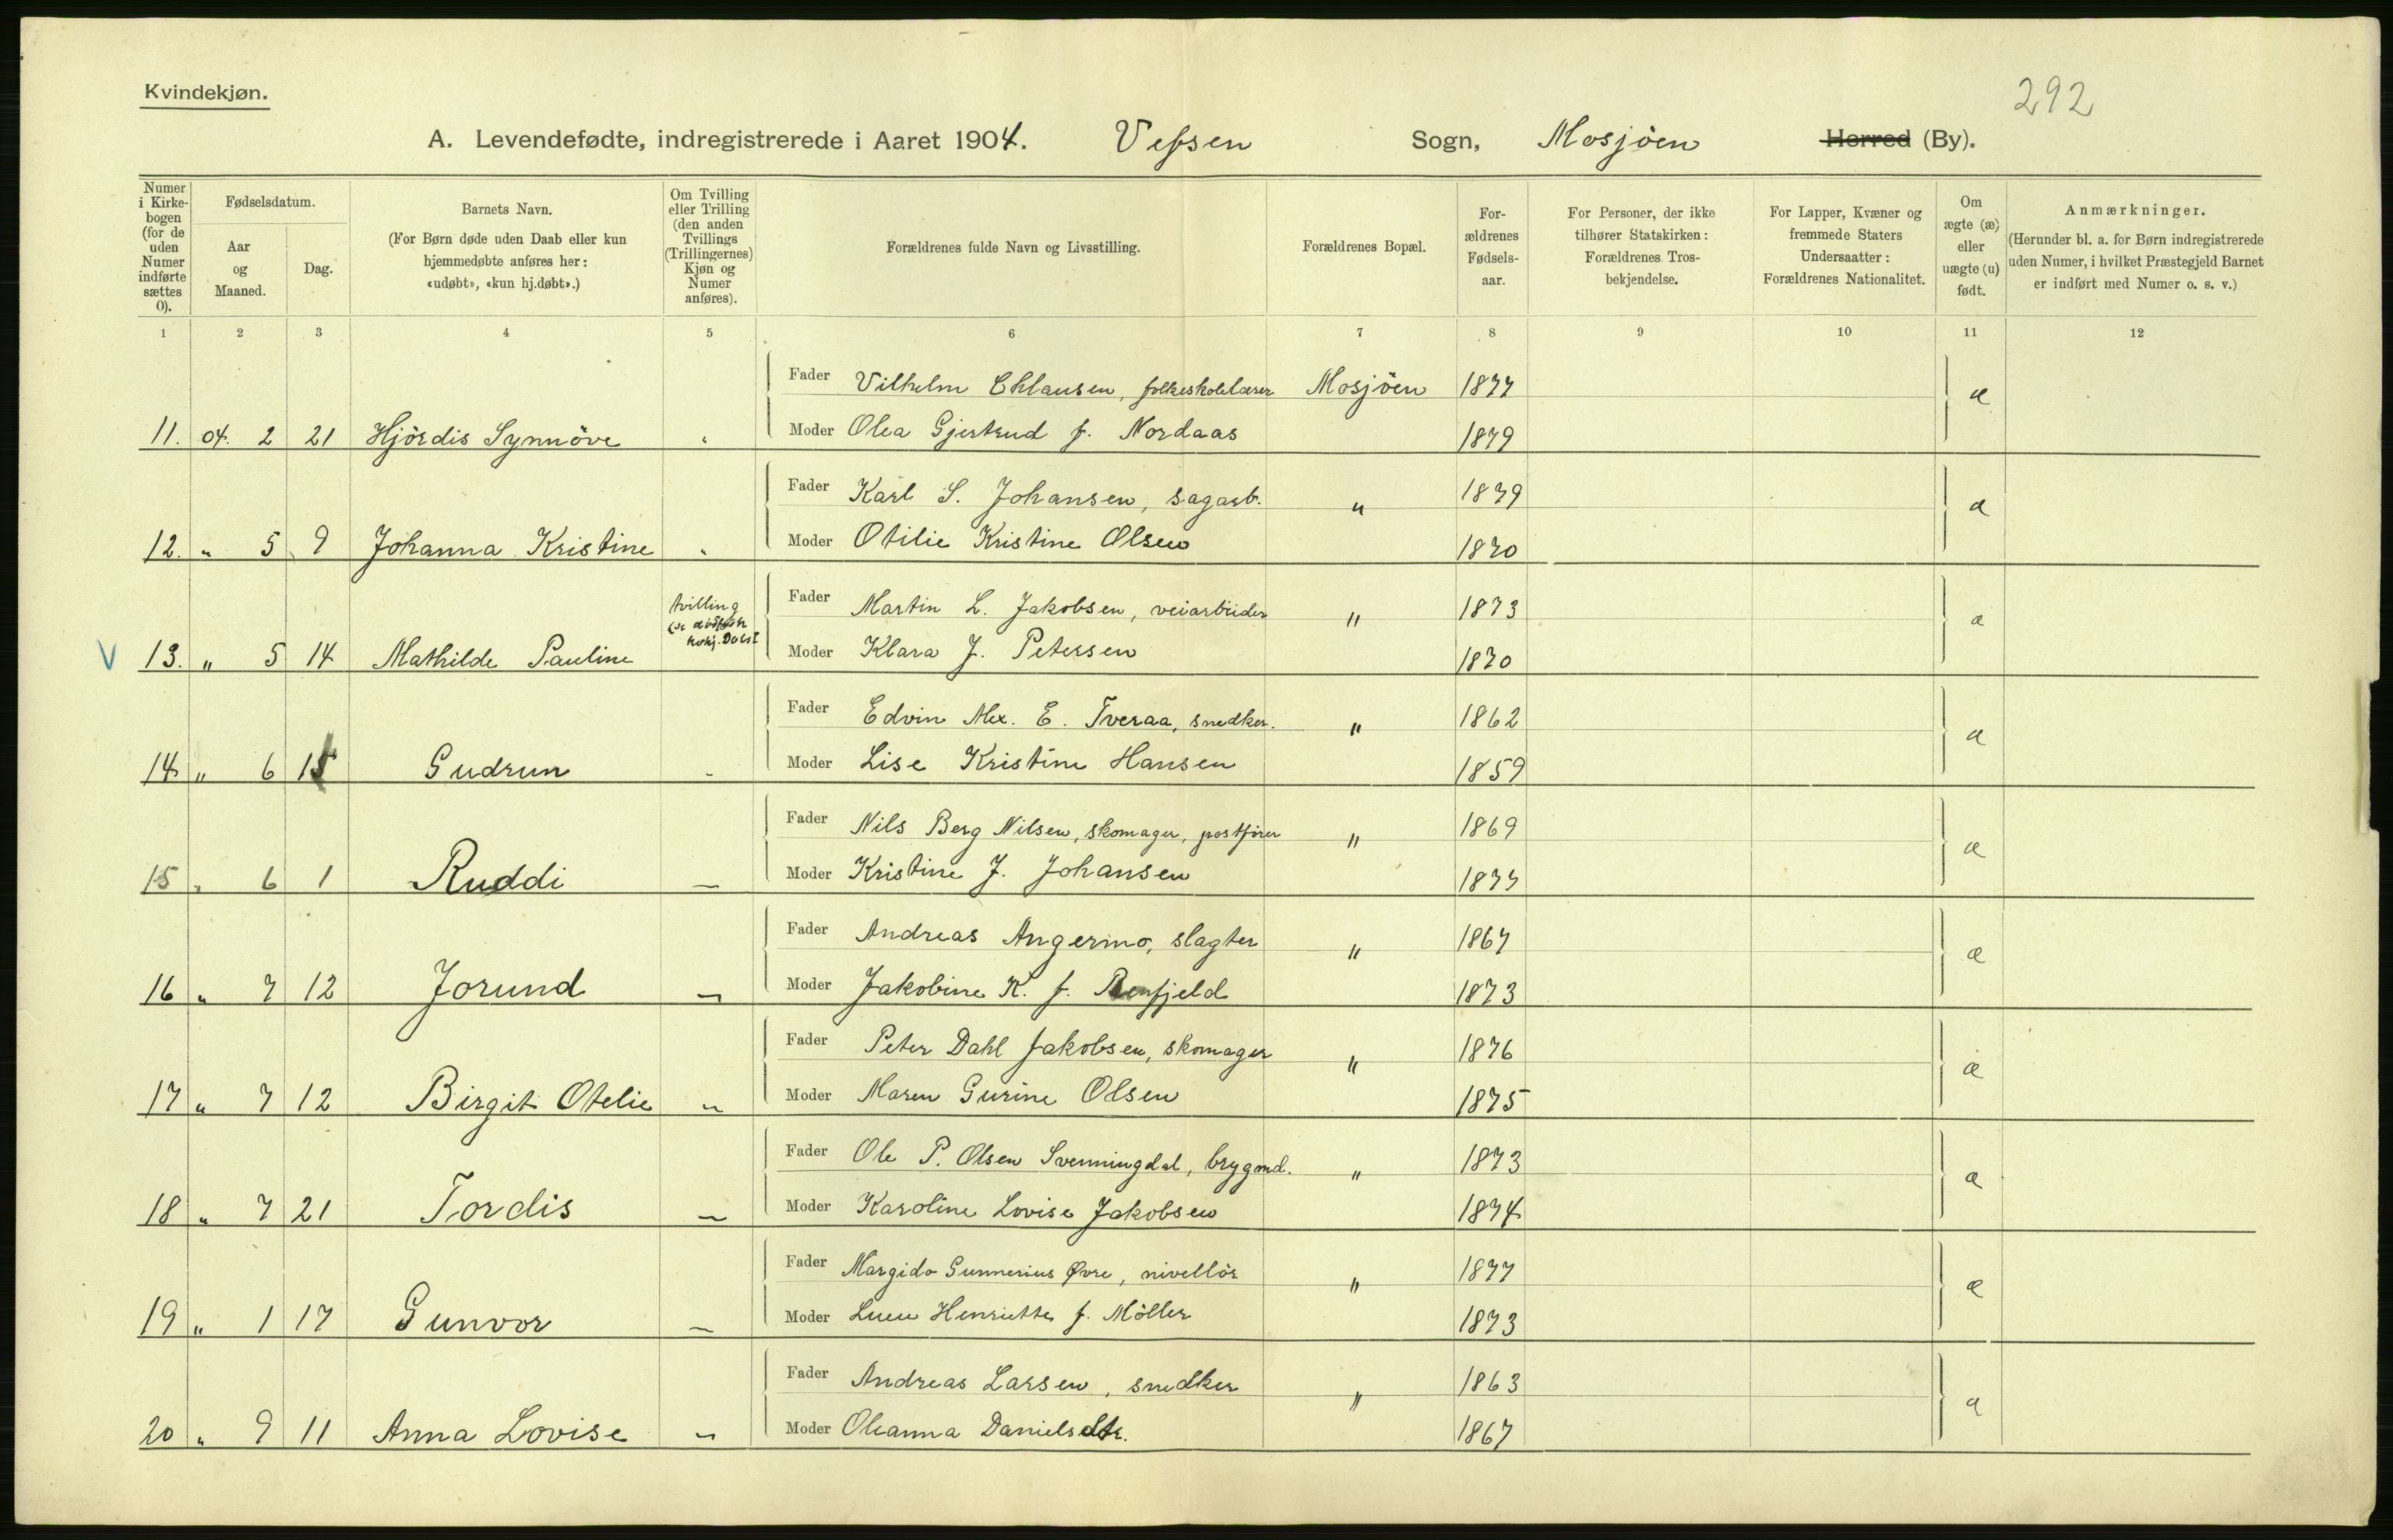 Kvindekjøn.
292
A. Levendefødte, indregistrerede i Aaret 1904. Vefsen Sogn, Mosjöen Herred (By).
Numer i Kirke-bogen (for de uden Numer indførte sættes 0).
Fødselsdatum.
Aar og Maaned.
Dag.
Barnets Navn.
(For Børn døde uden Daab eller kun hjemmedøbte anføres her: «udøbt», «kun hj.døbt».)
Om Tvilling eller Trilling (den anden Tvillings (Trillingernes) Kjøn og Numer anføres).
Forældrenes fulde Navn og Livsstilling.
Forældrenes Bopæl.
For-ældrenes Fødsels-aar.
For Personer, der ikke tilhører Statskirken: Forældrenes Tros-bekjendelse.
For Lapper, Kvæner og fremmede Staters Undersaatter: Forældrenes Nationalitet.
Om ægte (æ) eller uægte (u) født.
Anmærkninger.
(Herunder bl. a. for Børn indregistrerede uden Numer, i hvilket Præstegjeld Barnet er indført med Numer o. s. v.)
1 2 3 4 5 6 7 8 9 10 11 12
Fader Vilhelm Chlausen, folkeskolelærer Mosjöen 1877 æ
11. 04. 2 21 Hjördis Synnöve " Moder Olea Gjertrud f. Nordaas 1879
Fader Karl S. Johansen, sagarb. " 1879 æ
12. " 5 9 Johanna Kristine " Moder Otilie Kristine Olsen 1870
tvilling
Fader Martin L. Jakobsen, veiarbeider " 1873 æ
V 13. " 5 14 Mathilde Pauline Moder Klara J. Petersen 1870
Fader Edvin Alex. E. Tveraa, snedker. " 1862 æ
14 " 6 15 Gudrun - Moder Lise Kristine Hansen 1859
Fader Nils Berg Nilsen, skomager, postfører " 1869 æ
15 " 6 1 Ruddi — Moder Kristine J. Johansen 1877
Fader Andreas Angermo, slagter " 1867 æ
16 " 7 12 Jorund — Moder Jakobine K. f. Renfjeld 1873
Fader Peter Dahl Jakobsen, skomager " 1876 æ
17 " 7 12 Birgit Otelie — Moder Maren Gurine Olsen 1875
Fader Ole P. Olsen Svenningdal, brygmd. " 1873 æ
18 " 7 21 Tordis — Moder Karoline Lovise Jakobsen 1874
Fader Margido Gunnerius Øvre, nivellör " 1877 æ
19 " 1 17 Gunvor — Moder Henriette f. Möller 1873
Fader Andreas Larsen, snedker " 1863 æ
20 " 9 11 Anna Lovise — Moder Oleanna Danielsdtr. 1867